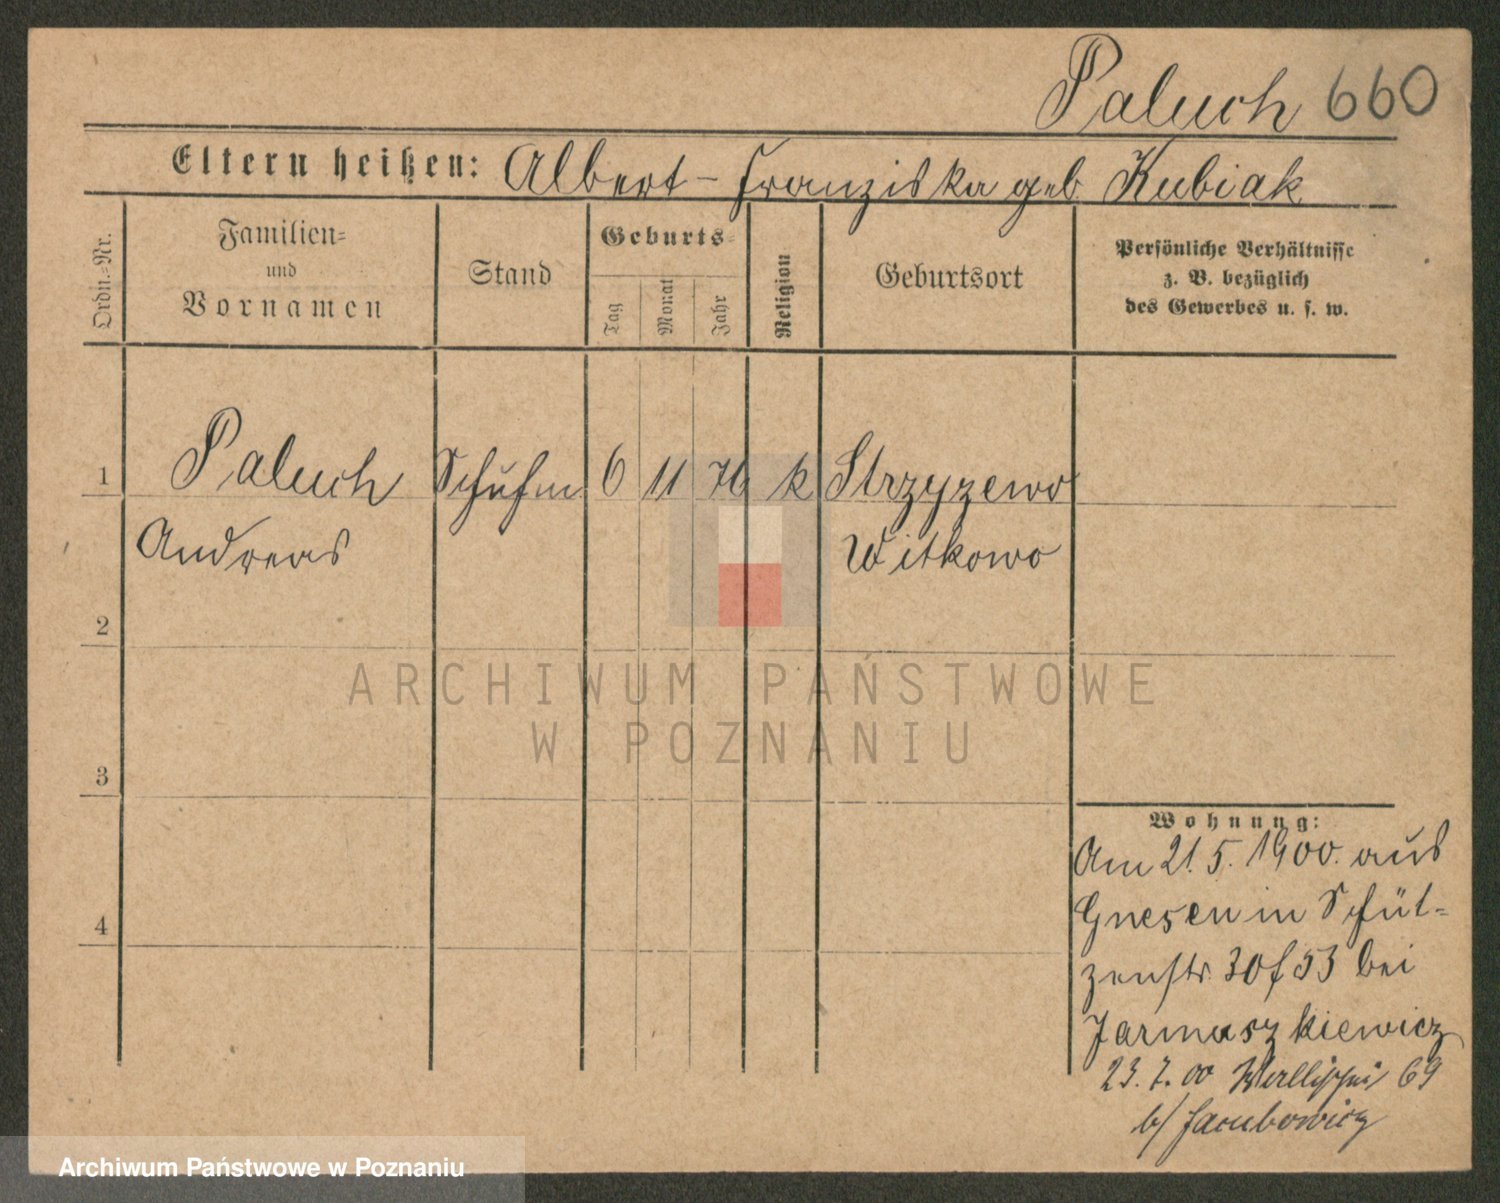 Paluch 660
Eltern heißen: Albert - Franziska geb Kubiak
Ordn.=Nr.
Familien=
und
Vornamen
Stand
Geburts=
Tag
Monat
Jahr
Religion
Geburtsort
Persönliche Verhältnisse
z. B. bezüglich
des Gewerbes u. s. w.
1 Paluch Schuhm 6 11 76 k Strzyzewo
Andreas Witkowo
2
3
4
Wohnung:
Am 21.5.1900. aus
Gnesen in Schüt=
zenstr. 30 53 bei
Jarmuszkiewicz
23.7.00 69
b/ Jacubowicz
ARCHIWUM PAŃSTWOWE
W POZNANIU
Archiwum Państwowe w Poznaniu